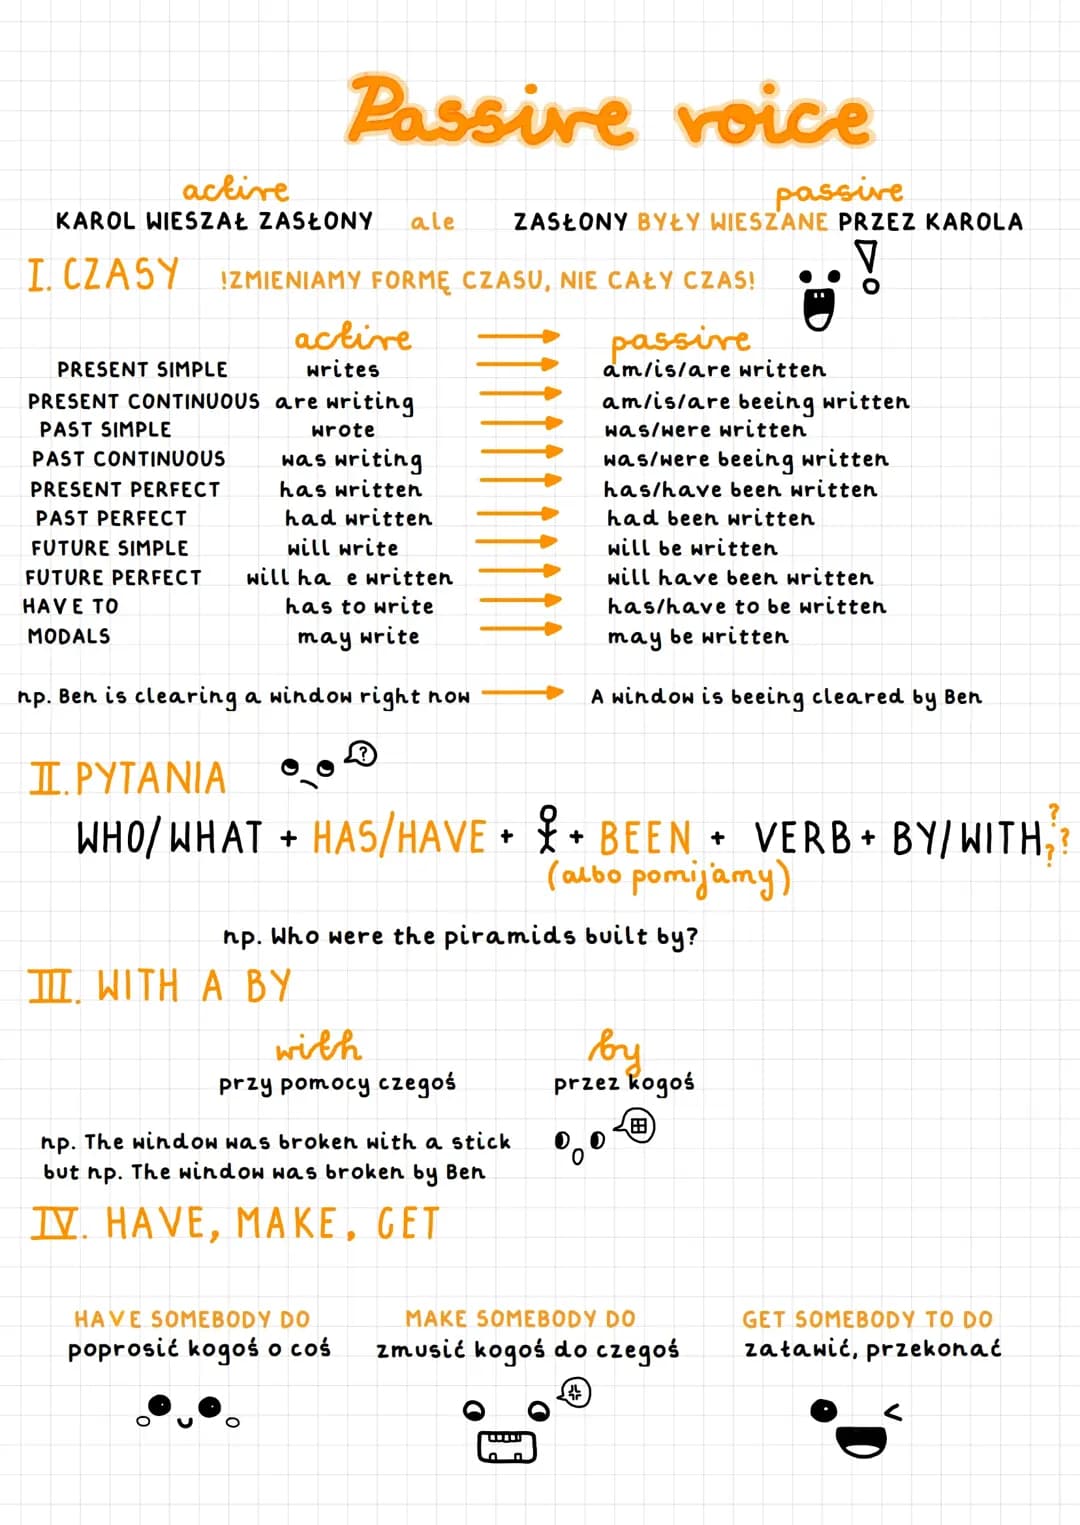 Passive voice
active passive
KAROL WIESZAŁ ZASŁONY ale ZASŁONY BYŁY WIESZANE PRZEZ KAROLA
I. CZASY !ZMIENIAMY FORMĘ CZASU, NIE CAŁY CZAS!
active passive
PRESENT SIMPLE writes am/is/are written
PRESENT CONTINUOUS are writing am/is/are beeing written
PAST SIMPLE wrote was/were written
PAST CONTINUOUS was writing was/were beeing written
PRESENT PERFECT has written has/have been written
PAST PERFECT had written had been written
FUTURE SIMPLE will write will be written
FUTURE PERFECT will ha e written will have been written
HAVE TO has to write has/have to be written
MODALS may write may be written
np. Ben is clearing a window right now A window is beeing cleared by Ben
II. PYTANIA ?
WHO/WHAT + HAS/HAVE + + BEEN + VERB + BY/WITH ???
(albo pomijamy)
np. Who were the piramids built by?
III. WITH A BY
with by
przy pomocy czegoś przez kogoś
np. The window was broken with a stick
but np. The window was broken by Ben
IV. HAVE, MAKE, GET
HAVE SOMEBODY DO MAKE SOMEBODY DO GET SOMEBODY TO DO
poprosić kogoś o coś zmusić kogoś do czegoś załawić, przekonać